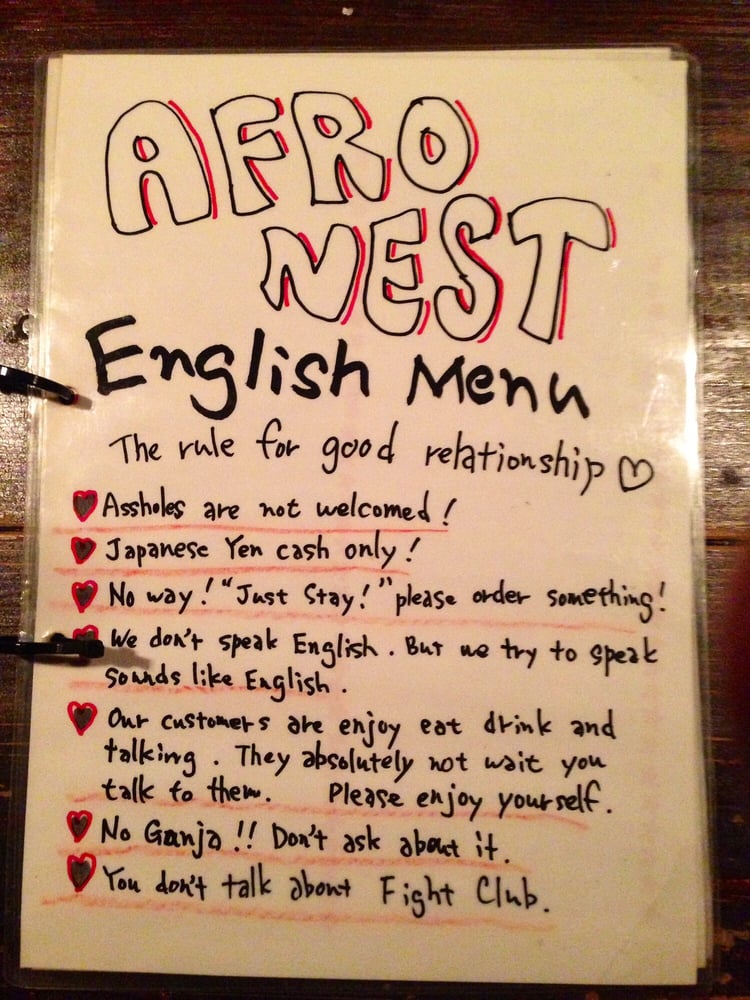 AFRO
NEST
English Menu
The rule for good relationship ♡
Assholes are not welcomed!
Japanese Yen cash only!
No way! "Just Stay!" please order something!
We don't speak English. But we try to speak
sounds like English.
Our customers are enjoy eat drink and
talking. They absolutely not wait you
talk to them. Please enjoy yourself.
No Ganja!! Don't ask about it.
You don't talk about Fight Club.